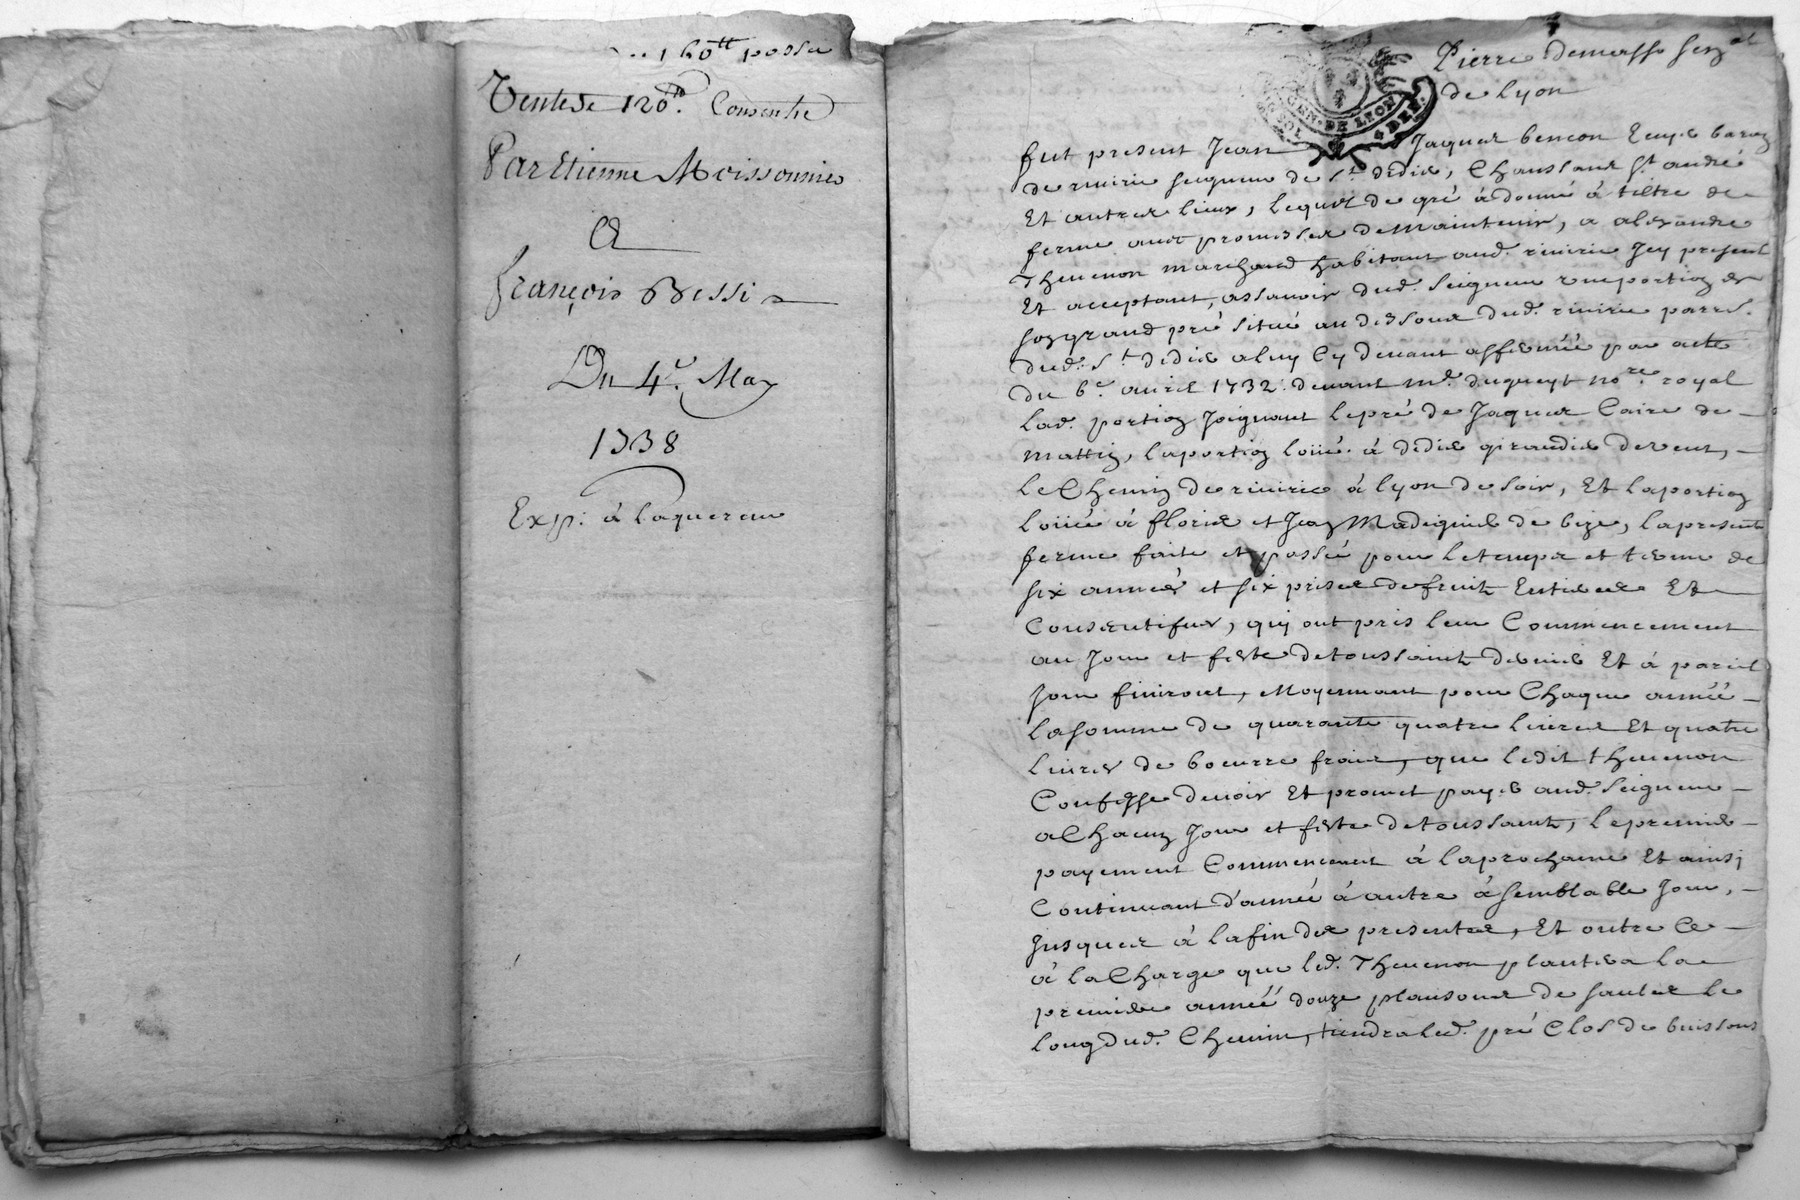 120ᵗᵗ passé
Vente de 120ᵗᵗ. Consentie
Par Etienne Moissonnier
A
françois Bessi
Du 4ᵉ. May
1738
Exp: à laquereur
Pierre Demasso senᵃˡ
de lyon
GEN. DE LYON
fut present Jean Jaques bencon Ecuyer baron
de riuirie seigneur de Sᵗ. didier, Chaussant Sᵗ. andré
Et autres lieux, lequel de gré à donné à tiltre de
ferme auec promesses de maintenir, a alexandre
Theuenon marchand habitant aud. riuirie Jcy present
Et acceptant, assauoir dud. seigneur une portion de
son grand pré situé au dessous dud. riuirie parrs.
dud. Sᵗ. didier a luy Cy deuant affermée par acte
du 6ᵉ. auril 1732. deuant mᵉ. dugueyt noʳᵉ. royal
lad. portion Joignant le pré de Jaques Caire de
mattin, la portion loüée à didier giraudier de vent,
le Chemin de riuirie à lyon de soir, Et la portion
loüée à floris et Jean Madignier de bize, la presente
ferme faite et passée pour le temps et terme de
six années et six prises de fruits Entieres Et
Consecutifues, qui ont pris leur Commencement
au Jour et feste de toussaint dernier Et à pareil
Jour finiront, Moyennant pour Chaque année
la somme de quarante quatre liures Et quatre
liures de boeurre frais, que ledit theuenon
Confesse deuoir Et promet payer aud. seigneur
a Chacun Jour et feste de toussaint, le premier
payement Commencent à la prochaine Et ainsi
Continuant d'année à autre à semblable Jour,
Jusques à la fin des presentes, Et outre Ce
à la Charge que led. Theuenon plantera la
premiere année douze plansons de saules le
long dud. Chemin, tiendra led. pré Clos de buissons